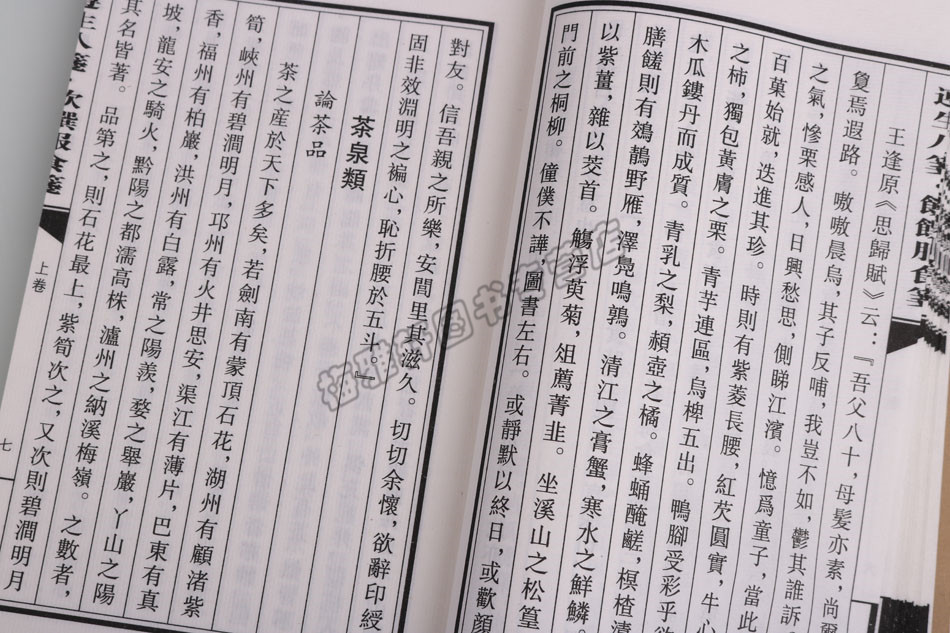 王逢原《思歸賦》云：『吾父八十，母髮亦素，尚爾
夐焉遐路。嗷嗷晨烏，其子反哺，我豈不如，鬱其誰訴
之氣，慘栗感人，日興愁思，側睇江濱。憶爲童子，當此
百菓始就，迭進其珍。時則有紫菱長腰，紅芡圓實，牛心
之柿，獨包黃膚之栗。青芋連區，烏椑五出。鴨腳受彩乎
木瓜鏤丹而成質。青乳之梨，頳壺之橘。蜂蛹醃鹺，榠楂
膳饈則有鵁鶄野雁，澤鳧鳴鶉。清江之膏蟹，寒水之鮮鱗。
以紫薑，雜以茭首。觴浮萸菊，俎薦菁韭。坐溪山之松篁
門前之桐柳。僮僕不譁，圖書左右。或靜默以終日，或歡顔
對友。信吾親之所樂，安閭里其滋久。切切余懷，欲辭印綬
固非效淵明之褊心，恥折腰於五斗。』
茶泉類
論茶品
茶之産於天下多矣，若劍南有蒙頂石花，湖州有顧渚紫
筍，峽州有碧澗明月，邛州有火井思安，渠江有薄片，巴東有真
香，福州有柏巖，洪州有白露，常之陽羨，婺之舉巖，丫山之陽
坡，龍安之騎火，黔陽之都濡高株，瀘州之納溪梅嶺。之數者，
其名皆著。品第之，則石花最上，紫筍次之，又次則碧澗明月
生八箋 飲饌服食箋
上卷
七